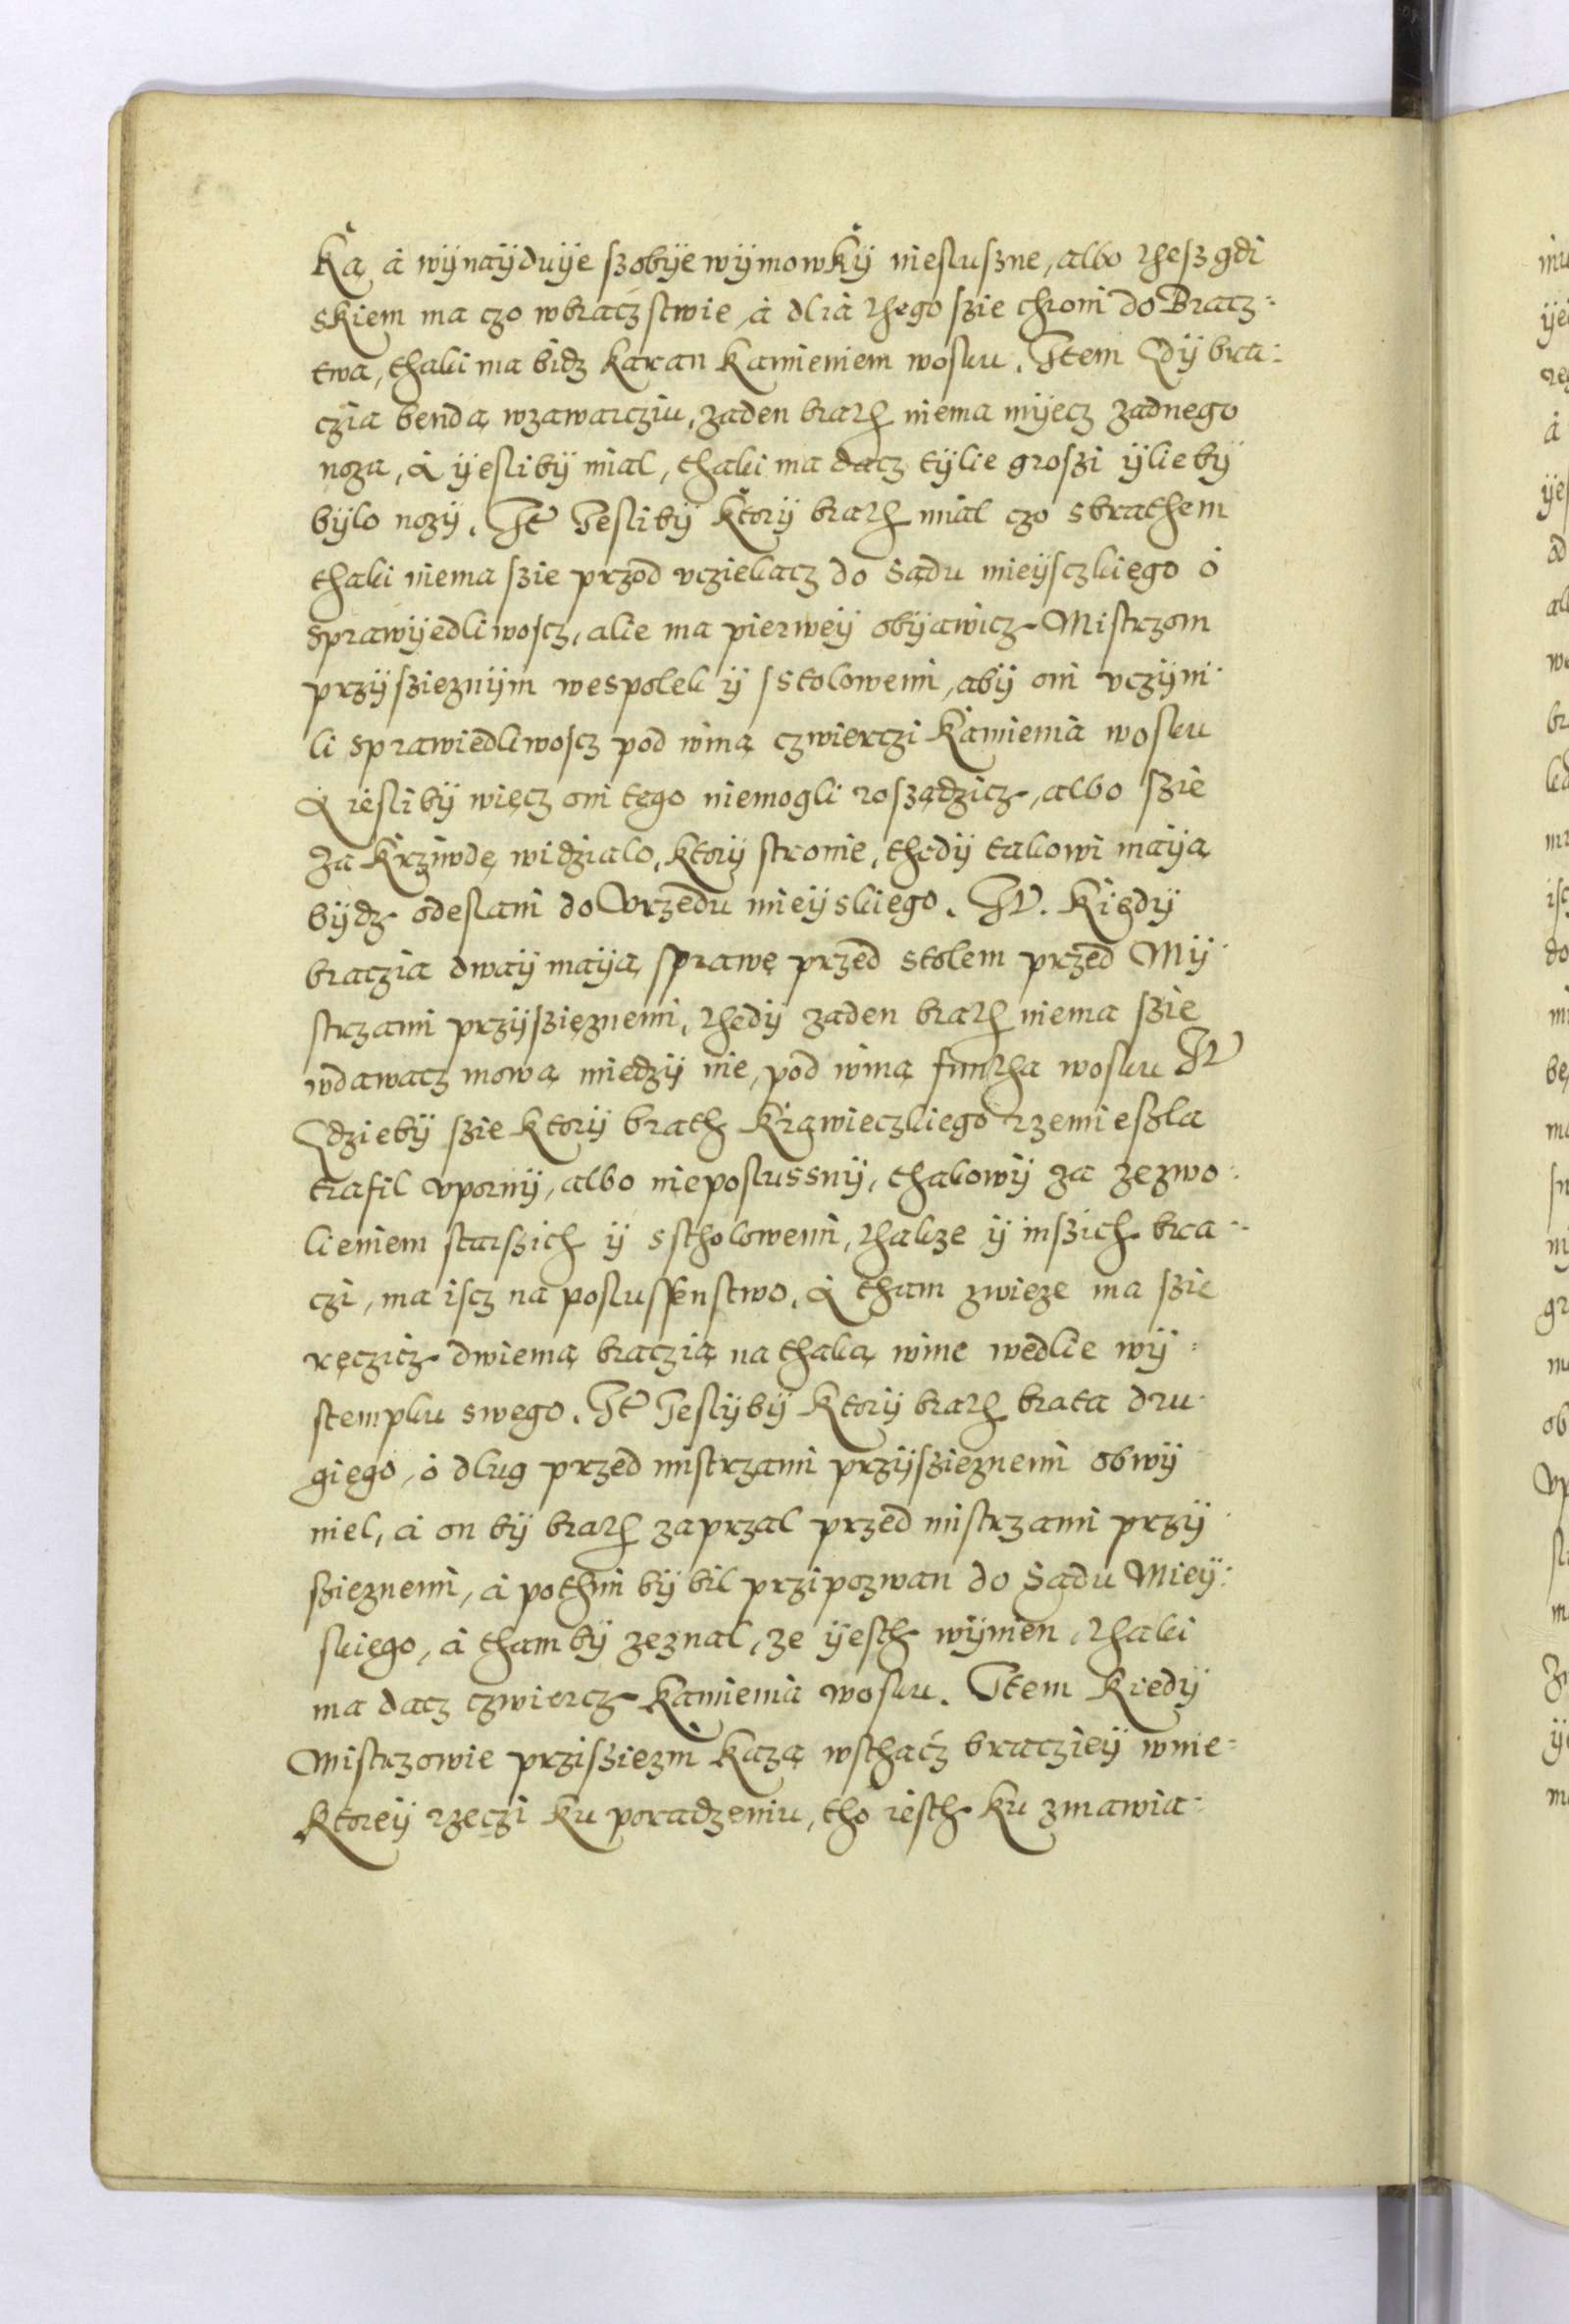 Ką, à wÿnaÿduÿe szobÿe wÿmowkÿ niesluszne, albo thesz gdi
skiem ma czo wbraczstwie, à dlià thego szie chroni do Bracz=
twa, thaki ma bidz karan kamieniem wosku. Item Gdÿ bra=
czia bendą wzawarcziu, zaden brath niema mÿecz zadnego
noza, à ÿeslibÿ mial, thaki ma dacz tÿlie groszi ÿliebÿ
bÿlo nozÿ. It Jeslibÿ ktorÿ brath mial czo sbrathem
thaki niema szie przod vcziekacz do Sądu mieÿsczkiego ò
sprawÿedliwoscz, alie ma pierweÿ obÿawicz Mistrzom
przÿszieznÿm wespolek ÿ sstolowemi, abÿ oni vczÿni
li sprawiedliwoscz pod winą czwierczi kamienia wosku
à ieslibÿ więcz oni tego niemogli rosządzicz, albo szie
za krziwdę widzialo, ktorÿ stronie, thedÿ takowi maÿą
bÿdz odeslani do Vrzedu mieÿskiego. It. Kiedÿ
braczia dwaÿ maÿą sprawę przed stolem przed Mÿ
strzami przÿszięznemi, thedÿ zaden brath niema szie
wdawacz mową miedzÿ nie, pod winą funtha wosku It
Gdziebÿ szie ktorÿ brath krawieczkiego rzemieszla
trafil vpornÿ, albo nieposlussnÿ, thakowÿ za zezwo=
lieniem starszich ÿ sstholowemi, thakze ÿ inszich bra=
czi, ma iscz na poslussenstwo, à tham zwieze ma szie
ręczicz dwiemą braczią na thaką winę wedlie wÿ=
stempku swego. It Jeslÿbÿ ktorÿ brath brata dru
giego, ò dlug przed mistrzami przÿszieznemi obwÿ
niel, à on bÿ brath zaprzal przed mistrzami przÿ
szieznemi, à pothim bÿ bil przipozwan do Sądu Mieÿ=
skiego, à tham bÿ zeznal, ze ÿesth wÿnien, thaki
ma dacz czwiercz kamienia wosku. Item kiedÿ
Mistrzowie prziszięzni kazą wsthacz bracziëÿ wnie=
ktoreÿ rzeczi ku poradzeniu, tho iesth ku zmawia=